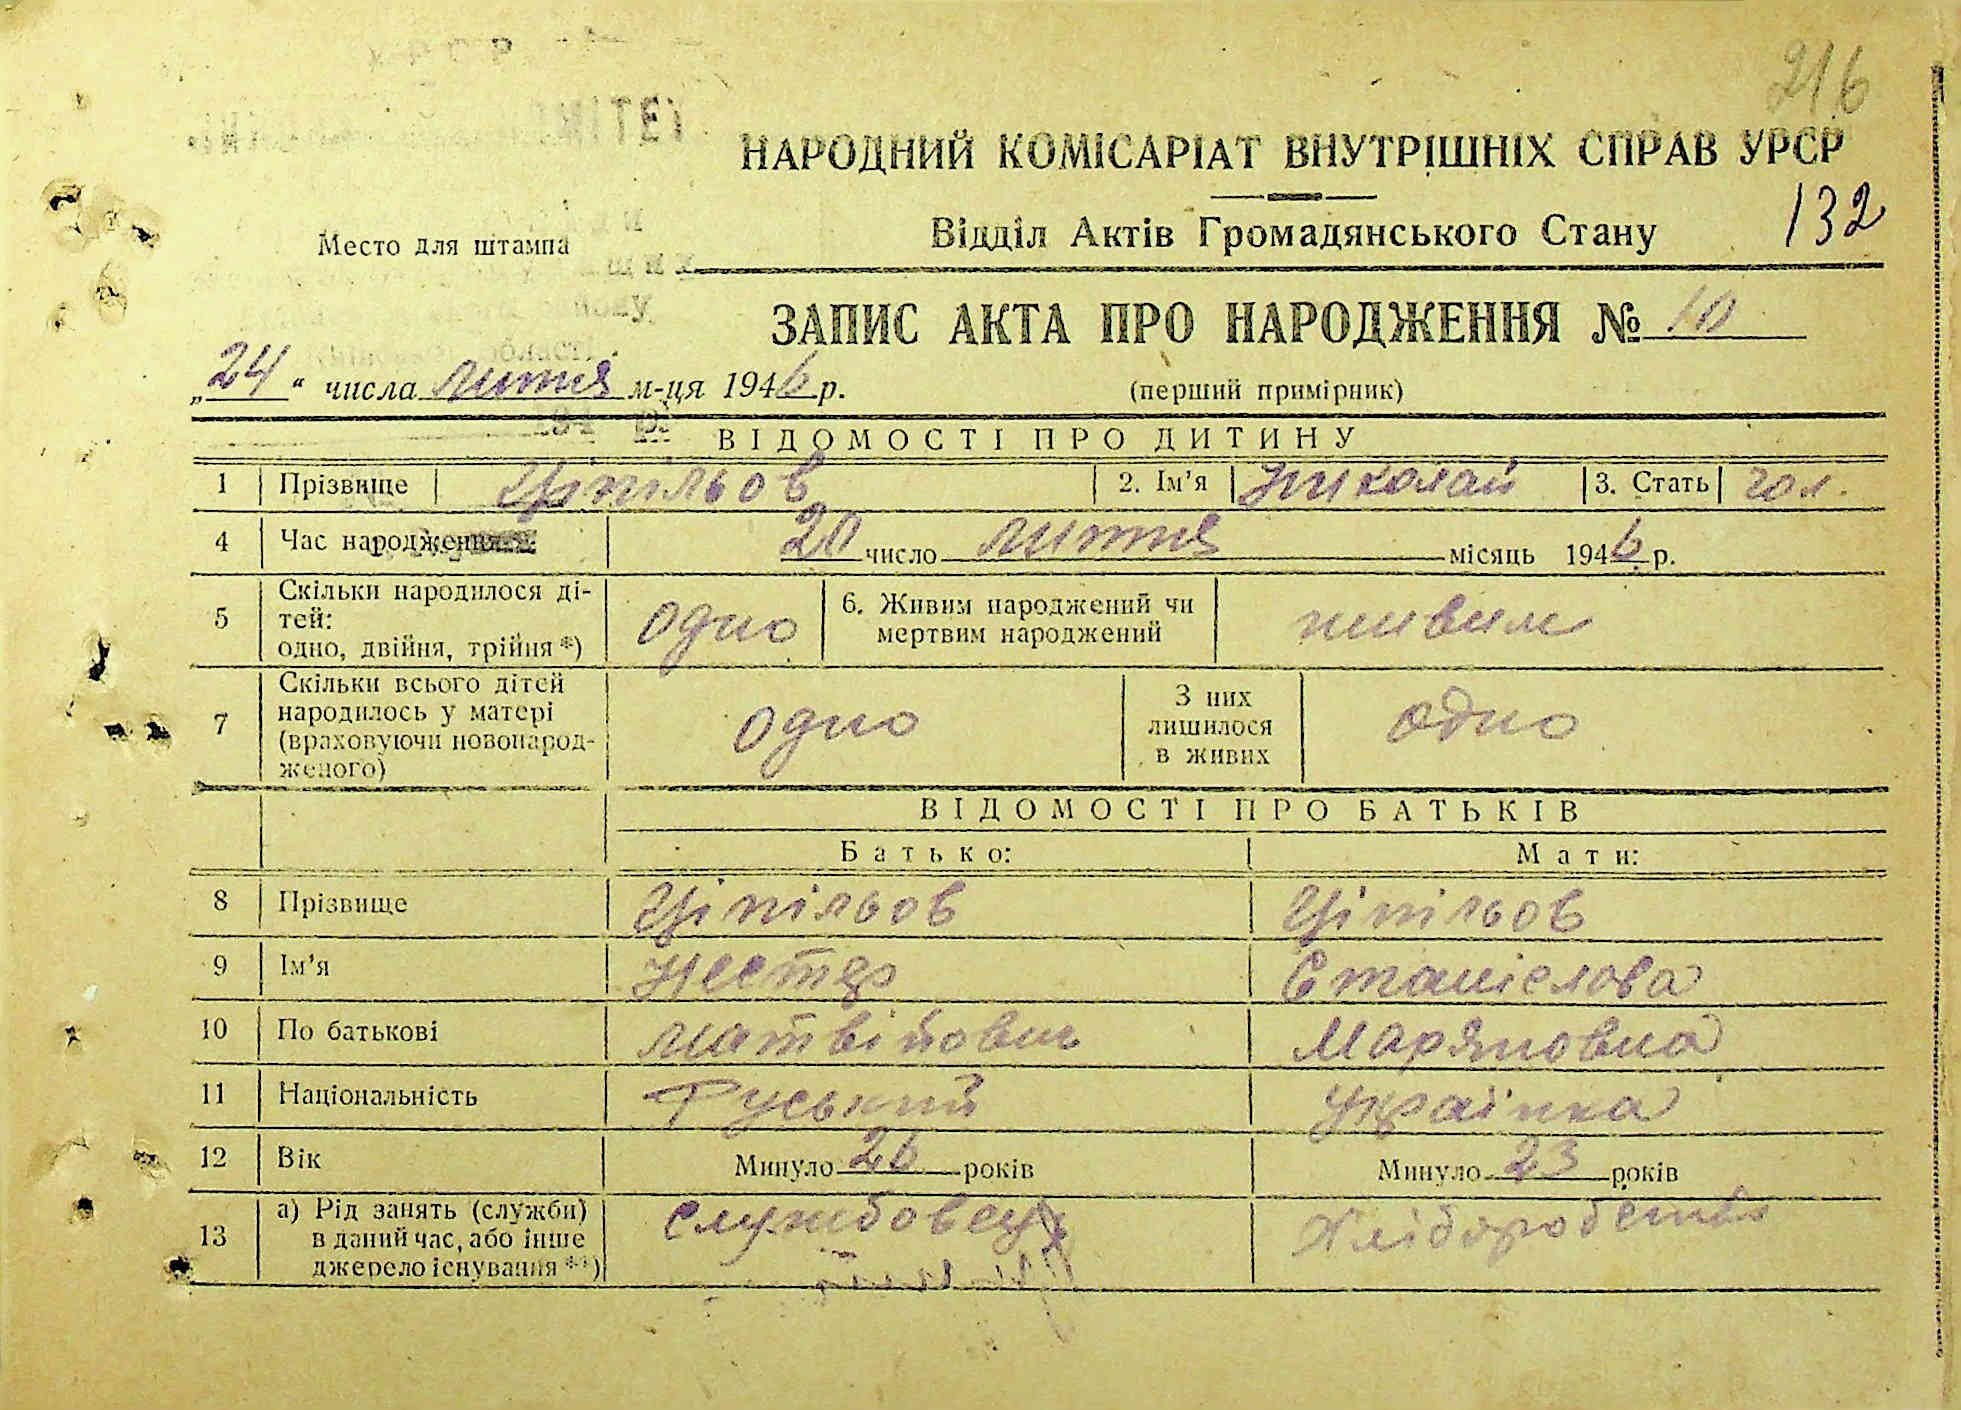 216
НАРОДНИЙ КОМІСАРІАТ ВНУТРІШНІХ СПРАВ УРСР
Место для штампа
Відділ Актів Громадянського Стану 132
ЗАПИС АКТА ПРО НАРОДЖЕННЯ № 10
„24“ числа лютня м-ця 1946 р. (перший примірник)
ВІДОМОСТІ ПРО ДИТИНУ
1 Прізвище Ціпільов 2. Ім’я Николай 3. Стать чол.
4 Час народження 20 число лютня місяць 1946 р.
5 Скільки народилося ді-
тей:
одно, двійня, трійня*) одно 6. Живим народжений чи
мертвим народжений живим
7 Скільки всього дітей
народилось у матері
(враховуючи новонарод-
женого) одно З них
лишилося
в живих одно
ВІДОМОСТІ ПРО БАТЬКІВ
Батько: Мати:
8 Прізвище Ціпільов Ціпільов
9 Ім’я Нестер Станіслова
10 По батькові Матвійович Маряновна
11 Національність Руський Українка
12 Вік Минуло 26 років Минуло 23 років
13 а) Рід занять (служби)
в даний час, або інше
джерело існування**) службовец Хліборобство